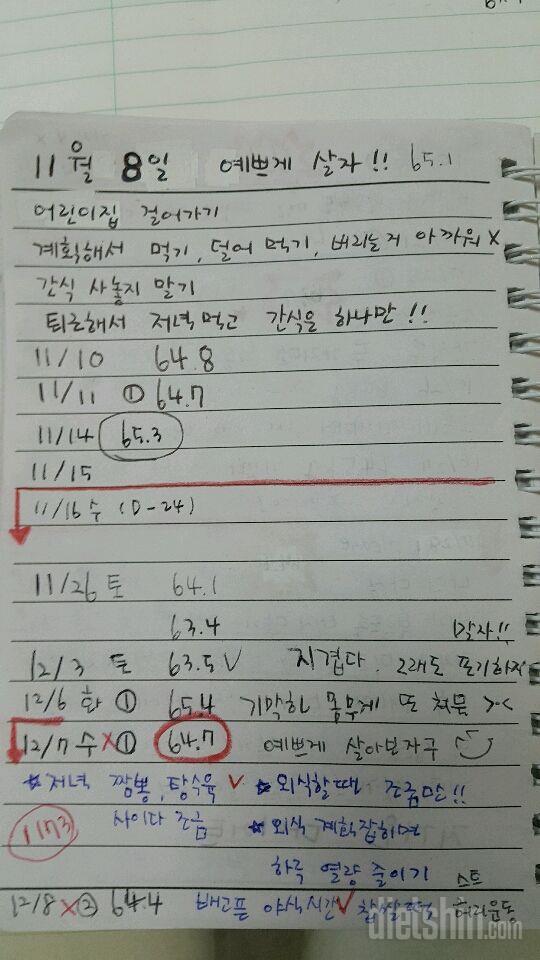 11월 8일 예쁘게 살자!! 65.1
어린이집 걸어가기
계획해서 먹기, 덜어 먹기, 버리는거 아까워 X
간식 사놓지 말기
퇴근해서 저녁먹고 간식은 하나만!!
11/10 64.8
11/11 ① 64.7
11/14 65.3
11/15
11/16 수 (D-24)
11/26 토 64.1
63.4 말자!!
12/3 토 63.5 V 지겹다. 그래도 포기하지
12/6 화 ① 65.4 기막힌 몸무게 또 처묵 >.<
12/7 수 X ① 64.7 예쁘게 살아보자구
☆저녁 짬뽕, 탕수육 V ☆외식할때 조금만!!
1173 사이다 조금 ☆외식 계획잡히면
하루 열량 줄이기 스토
12/8 X ② 64.4 배고픈 야식시간 V 찹쌀
dietshin.com